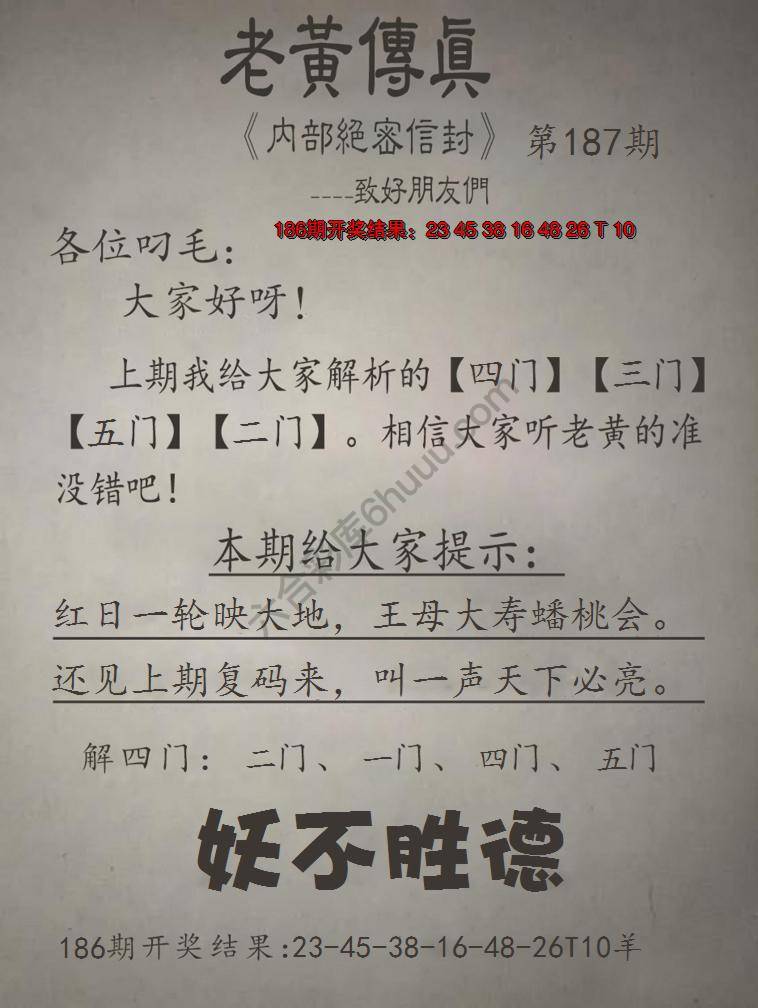 老黃傳眞
《内部絕密信封》 第187期
----致好朋友們
186期开奖结果：23 45 38 16 48 26 T 10
各位叼毛：
大家好呀！
上期我给大家解析的【四门】【三门】
【五门】【二门】。相信大家听老黄的准
没错吧！
本期给大家提示：
红日一轮映大地，王母大寿蟠桃会。
还见上期复码来，叫一声天下必亮。
解四门：二门、一门、四门、五门
妖不胜德
186期开奖结果:23-45-38-16-48-26T10羊
六合彩库6huuu.com